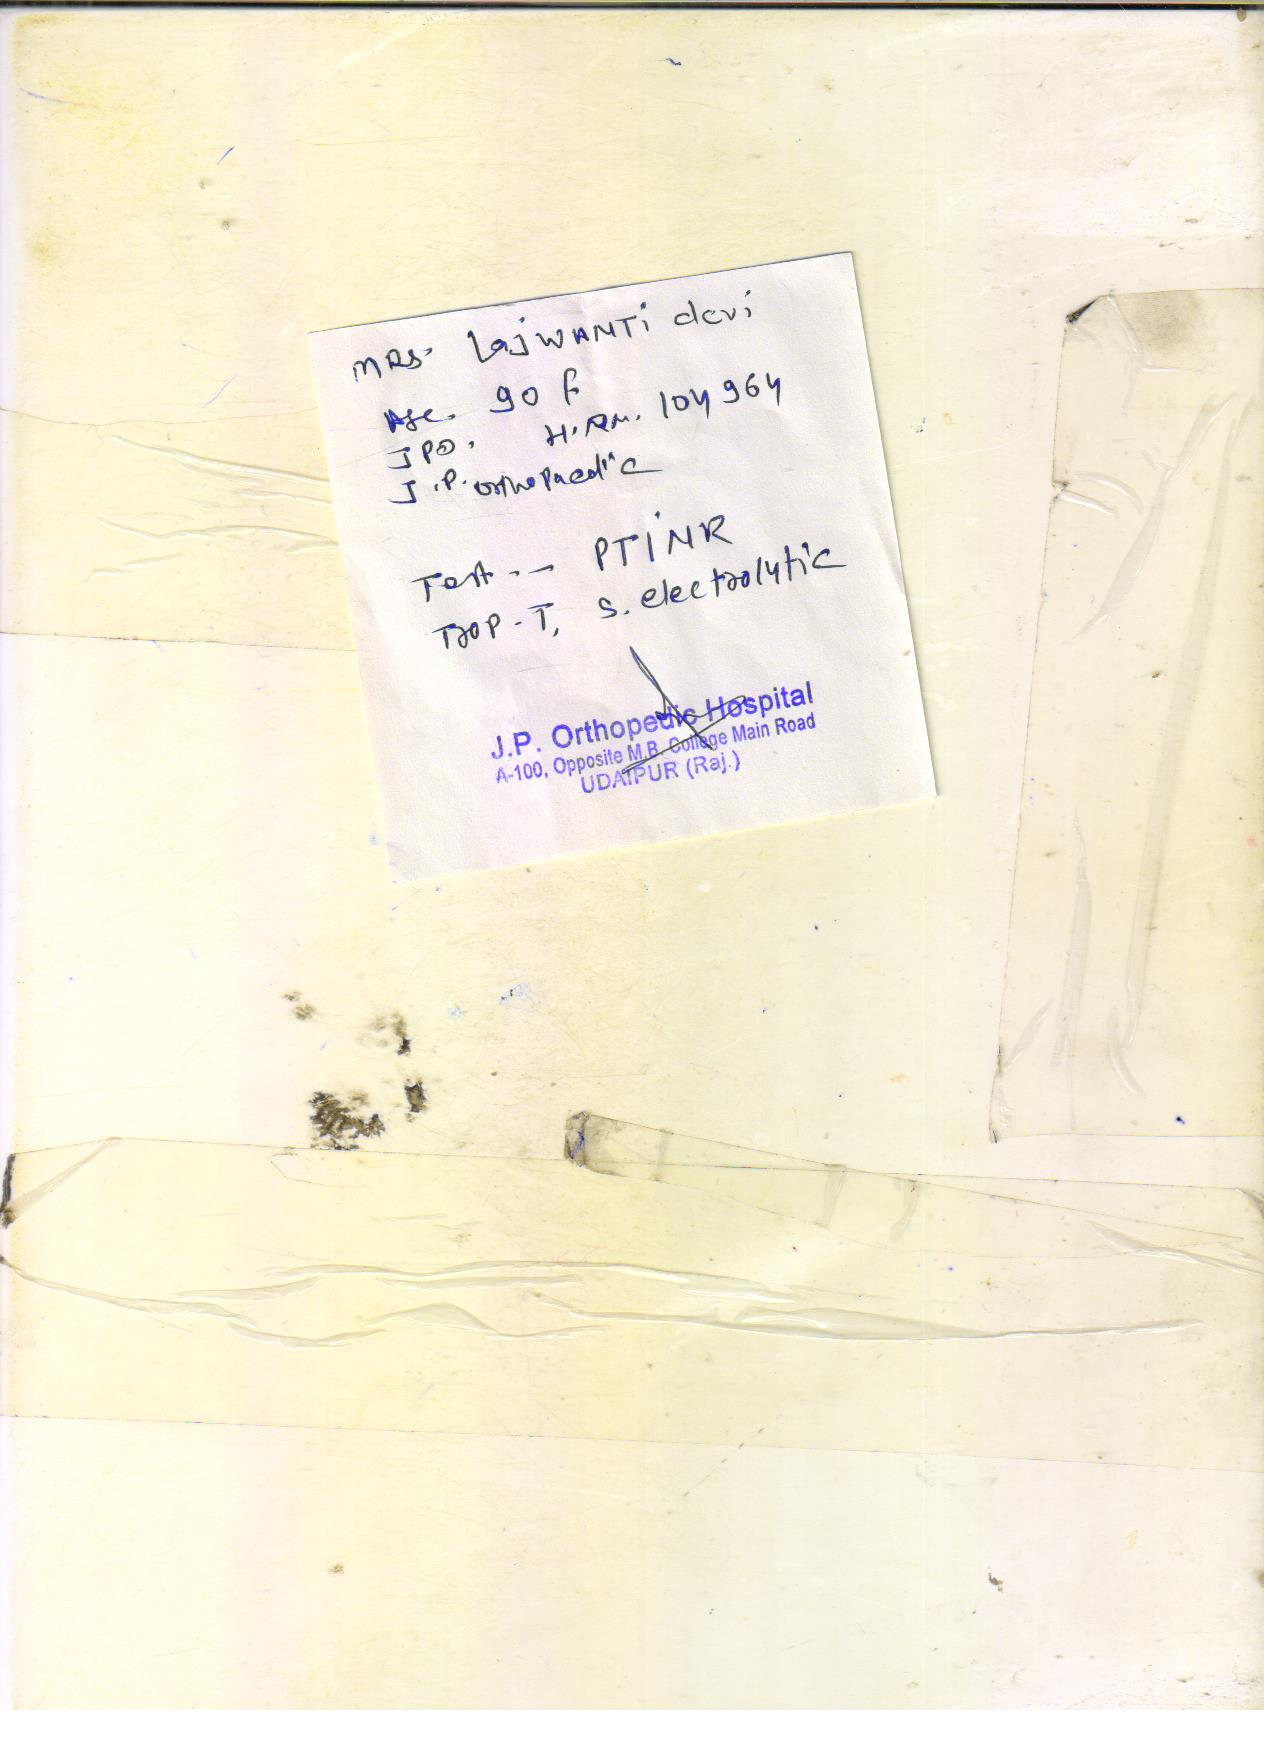 MRS. Lajwanti devi
Age. 90 F
IPD. H.Rm. 104964
J.P. orthopaedic
Test -- PTINR
Trop-T, S. electrolytic
J.P. Orthopedic Hospital
A-100, Opposite M.B. College Main Road
UDAIPUR (Raj.)